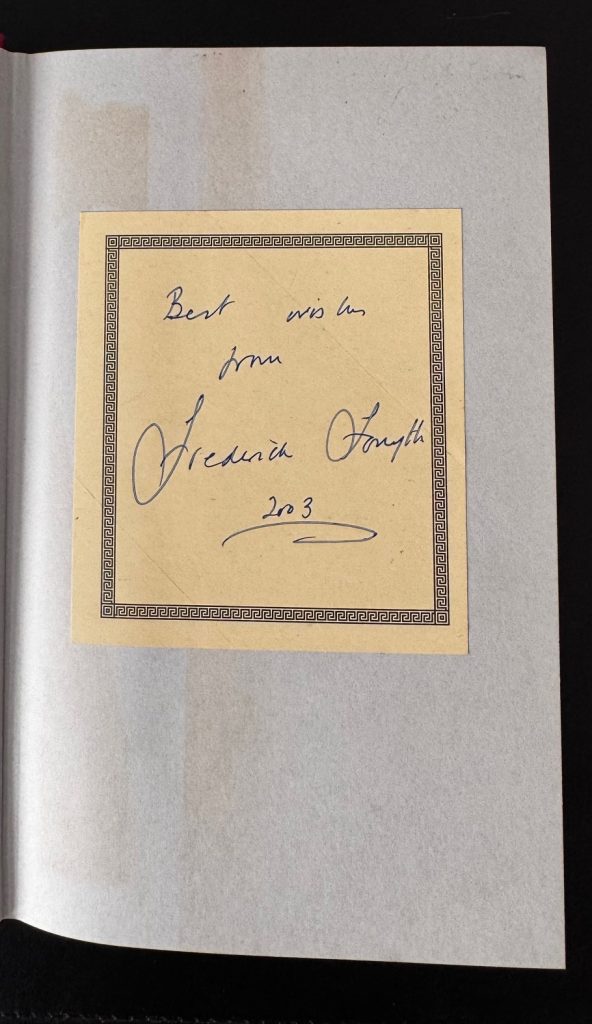 Best wishes
from
Frederick Forsyth
2003